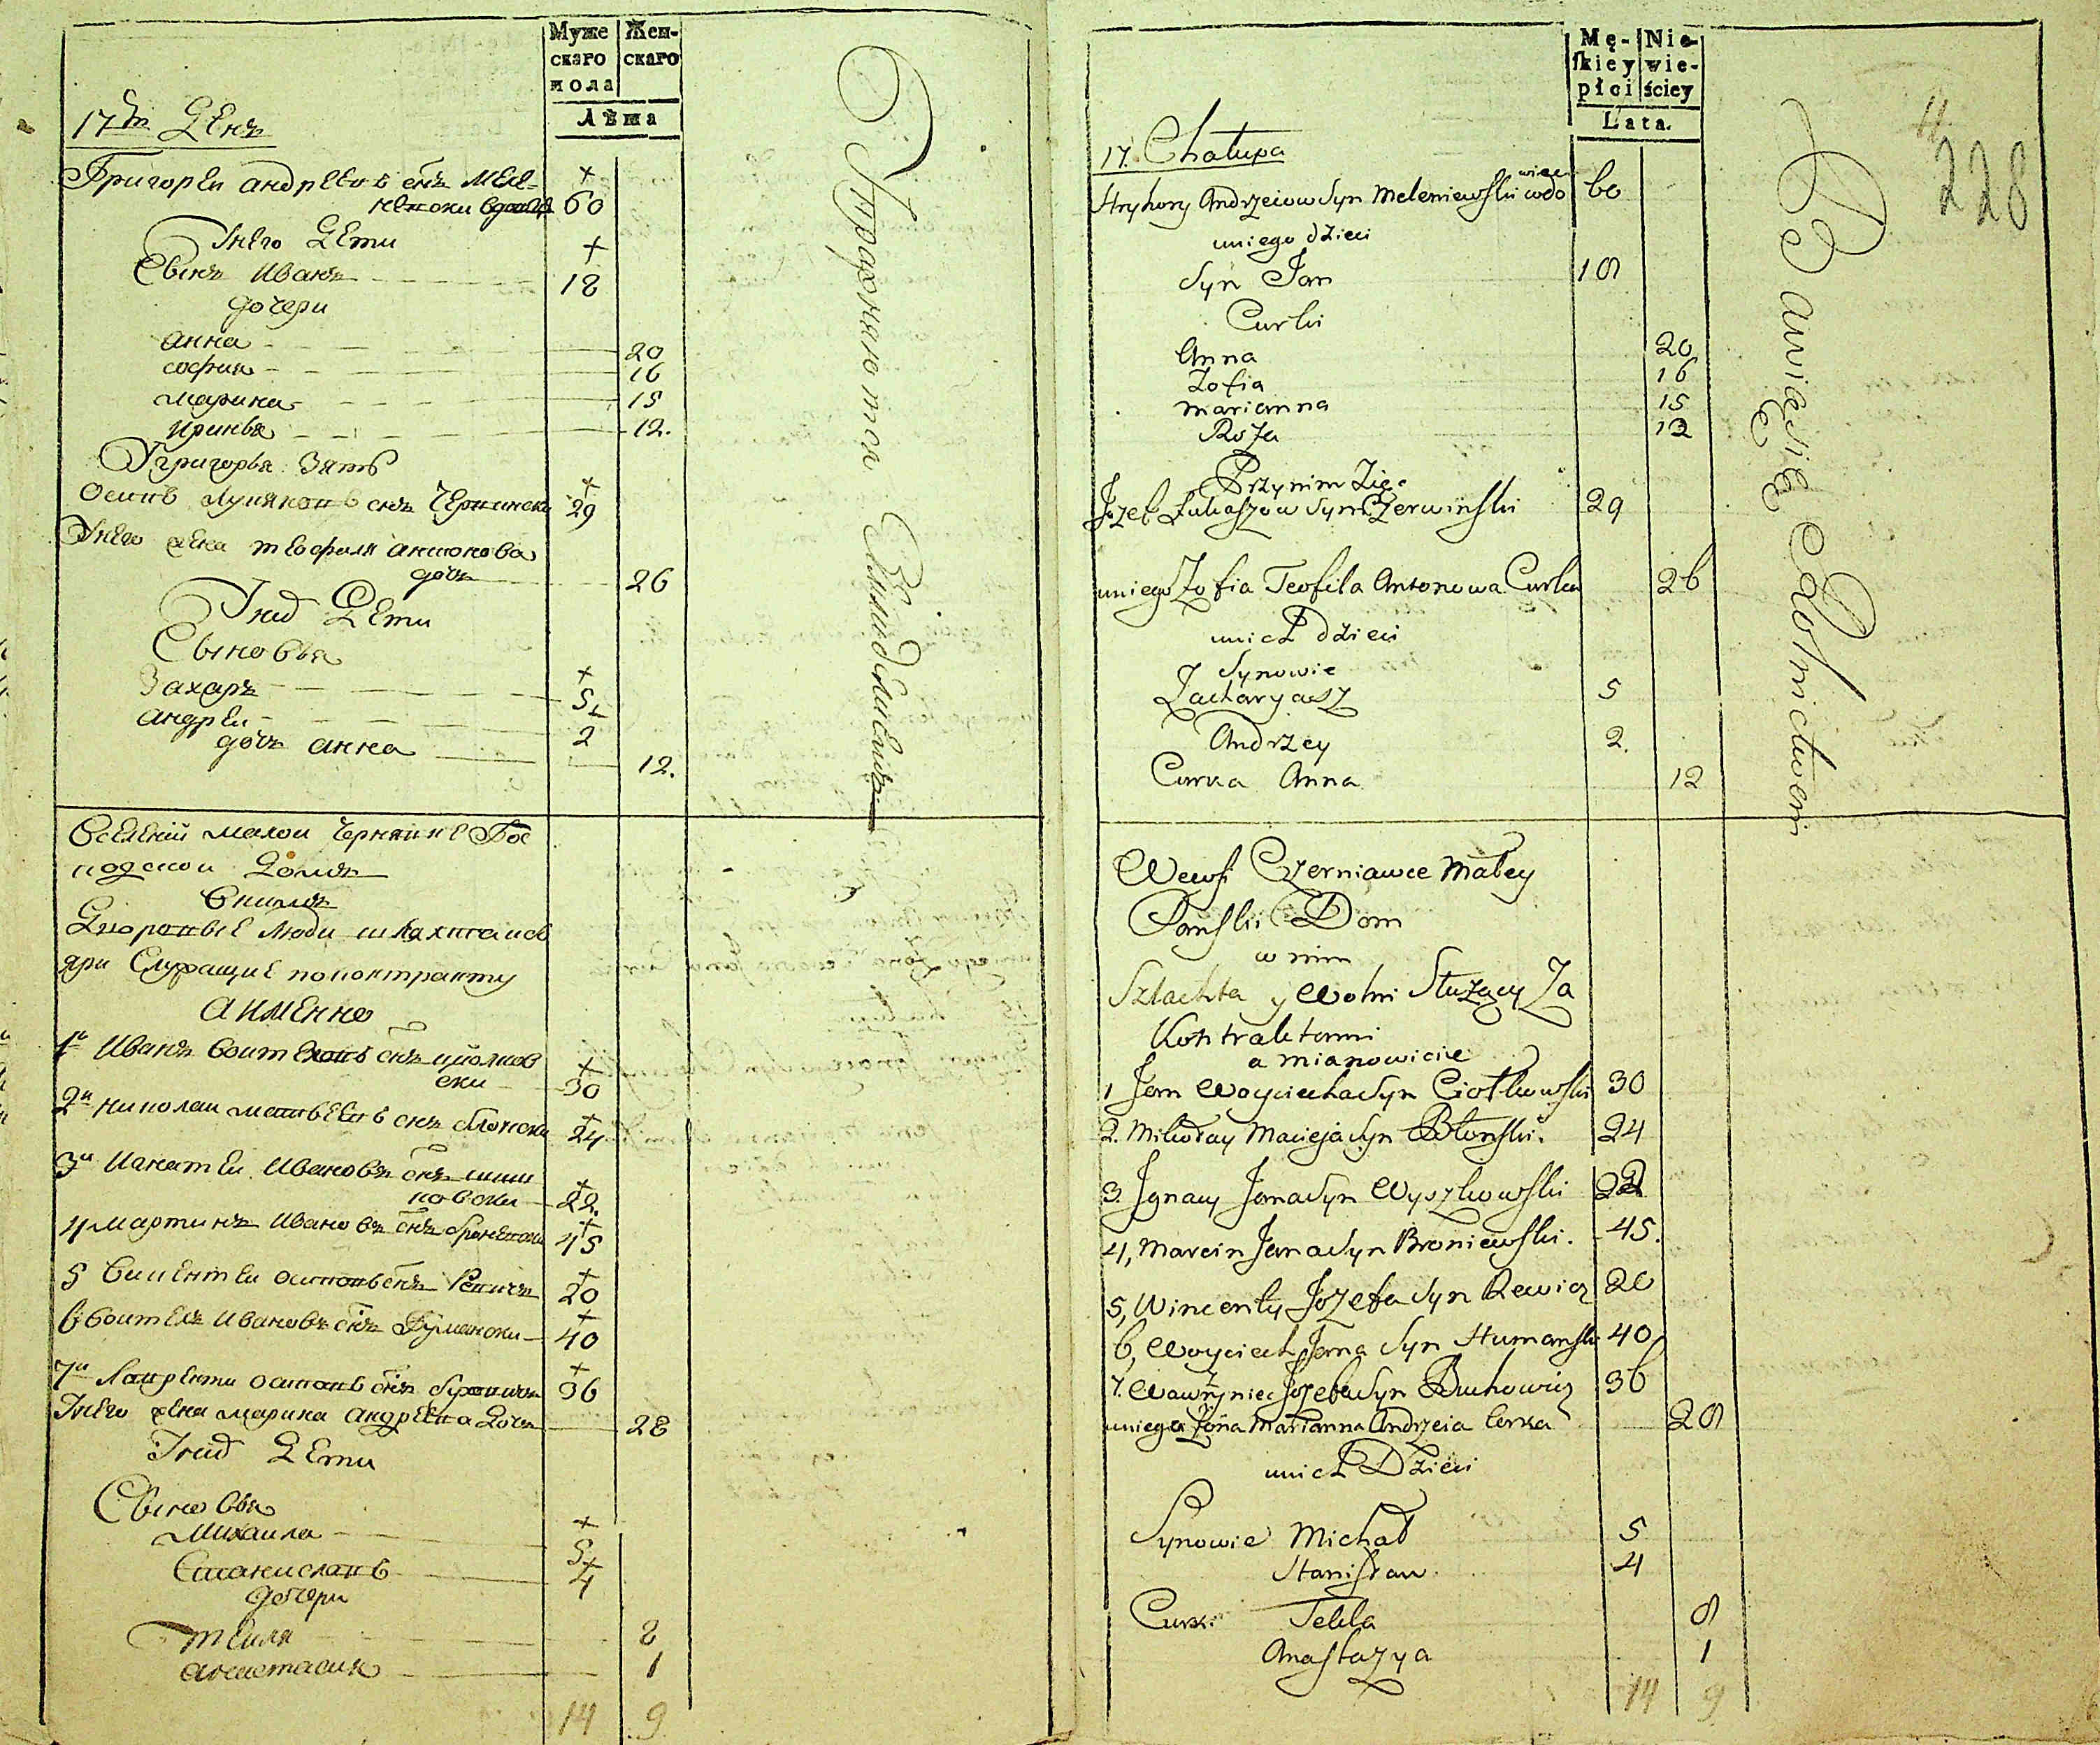 Муже
скаго
пола
Жен-
скаго
Лѣта
17й Дейъ
Григореи андреевъ снъ Меле-
невски вдовецъ 60
Унего Дети
Сынъ Иванъ 18
дочери
анна 20
софия 16
марина 15
ирина 12.
Угригорья Зять
осипъ Лукиановъ снъ Червински 29
Унего жена теофиля антонова
дочь 26
Уних Дети
Сыновья
Захаръ 5
андреи 2
дочь анна 12.
Упражняются Хлибопашествомъ
Вселении малои Черниавке Гос
подскои Домъ
Внимъ
Дворовые люди шляхта
Служащие поконтракту
аименно
1и Иванъ воитеховъ снъ циолков
ски 30
2и николаи матвеевъ снъ блонски 24
3и Игнатеи Ивановъ снъ выш
ковски 22.
4 мартинъ Ивановъ снъ броневски 45
5 Викентеи осиповъ снъ Ревичь 20
6 воитехъ Ивановъ снъ Гумански 40
7и Лаврентеи осиповъ снъ Буховичь 36
Унего жена марина андреева Дочь 28
Уних Дети
Сыновья
Михаила 5
Станиславъ 4
дочери
текля 8
анастасия 1
14 9
Mę-
skiey
płci
Nie-
wie-
ściey
Lata.
11
228
17. Chałupa
Hryhory Andrzeiow Syn Meleniewski wdo wiec 60
uniego dzieci
Syn Jan 18
Curki
Anna 20
Zofia 16
Marianna 15
Roza 12
Przynim Zięc
Jozef Łukaszow Syn Czerwinski 29
uniego Zofia Teofila Antonowa Curka 26
unich dzieci
Synowie
Zacharyasz 5
Andrzey 2.
Curka Anna 12
Bawię się Rolnictwem
Wewsi Czerniawce Małey
Panski Dom
w nim
Szlachta y Wolni Służący Za
Kontraktami
a mianowicie
1 Jan Woyciecha Syn Ciołkowski 30
2. Mikołay Macieja Syn Błonski. 24
3. Jgnacy Jana Syn Wyszkowski 22
4, Marcin Jana Syn Broniewski. 45.
5, Wincenty Jozefa Syn Rewicz 20
6, Woyciech Jana Syn Humanski 40
7. Wawrzyniec Jozefa Syn Buchowicz 36
uniega Żona Marianna Andrzeia Corka 28
unich Dzieci
Synowie Michał 5
Stanisław 4
Curk: Tekla 8
Anastazya 1
14 9